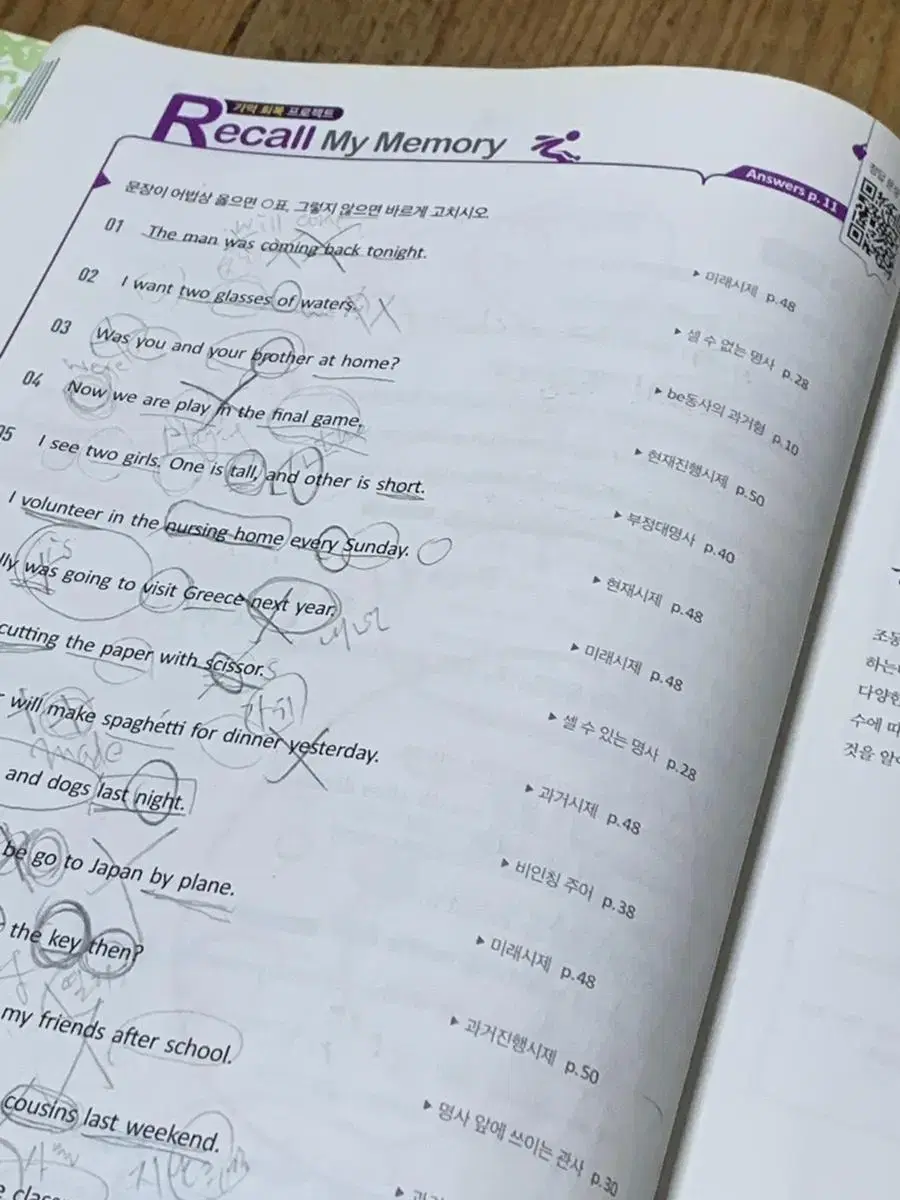 기억 회복 프로젝트
Recall My Memory
Answers p. 11
문장이 어법상 옳으면 ○표, 그렇지 않으면 바르게 고치시오.
will come
01 The man was coming back tonight.
▶ 미래시제 p.48
02 I want two glasses of waters.
▶ 셀 수 없는 명사 p.28
03 Was you and your brother at home?
▶ be동사의 과거형 p.10
were
04 Now we are play in the final game.
▶ 현재진행시제 p.50
05 I see two girls. One is tall, and other is short.
▶ 부정대명사 p.40
I volunteer in the nursing home every Sunday.
▶ 현재시제 p.48
is
was going to visit Greece next year.
▶ 미래시제 p.48
cutting the paper with scissor.s
▶ 셀 수 있는 명사 p.28
가위
will make spaghetti for dinner yesterday.
▶ 과거시제 p.48
made
and dogs last night.
▶ 비인칭 주어 p.38
be go to Japan by plane.
▶ 미래시제 p.48
the key then?
▶ 과거진행시제 p.50
my friends after school.
▶ 명사 앞에 쓰이는 관사 p.30
cousins last weekend.
조동
하는
다양한
수에 따
것을 알